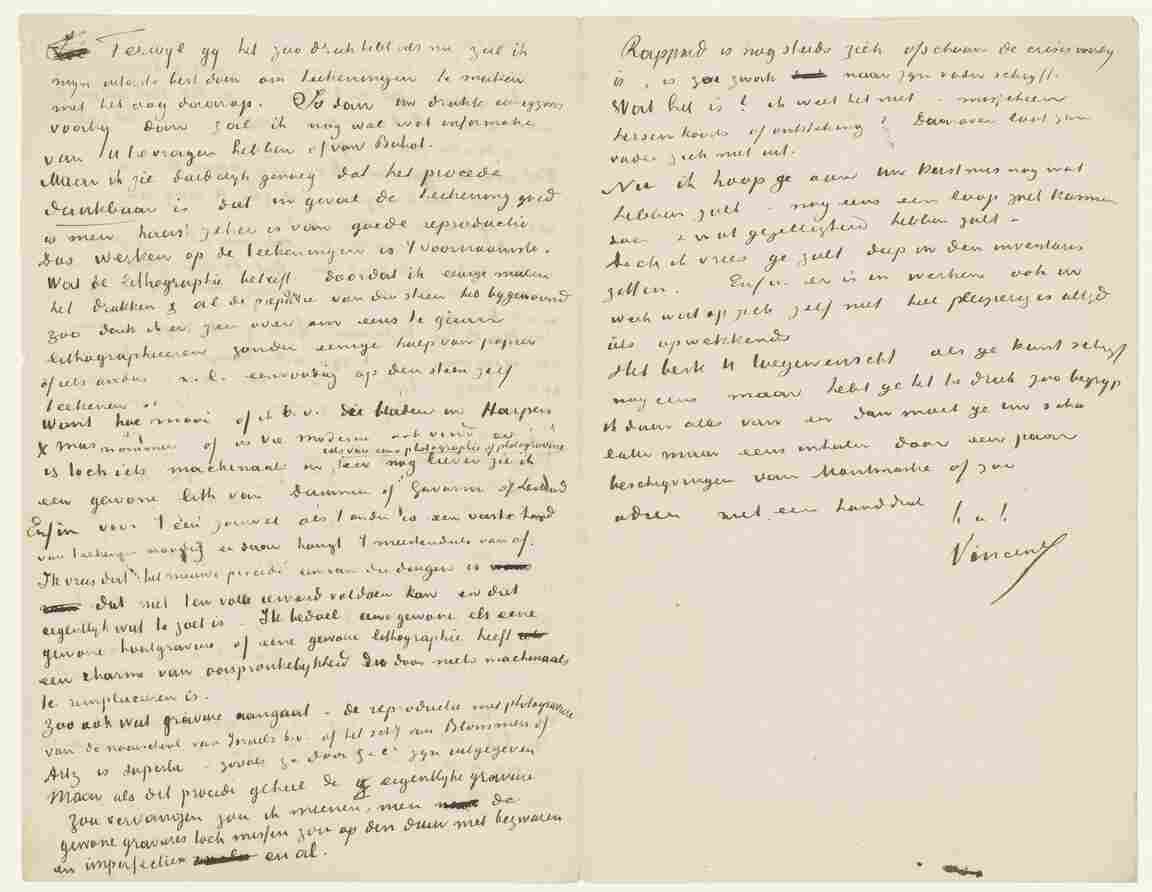 Terwijl gij het zoo druk hebt als nu zal ik
mijn uiterste best doen om teekeningen te maken
met het oog daarop. Is dan uw drukte eenigzins
voorbij dan zal ik nog wel wat informatie
van U te vragen hebben of van Buhot.
Maar ik zie duidelijk genoeg dat het procédé
dankbaar is dat in geval de teekening goed
is men haast zeker is van goede reproductie
Dus werken op de teekeningen is 't voornaamste.
Wat de lithographie betreft doordat ik eenige malen
het drukken & al de préparatie van die steen heb bijgewoond
zoo denk ik er zeer over om eens te gaan
lithographieeren zonder eenige hulp van papier
of iets anders n.l. eenvoudig op den steen zelf
teekenen.
Want hoe mooi of ik b.v. die bladen in Harpers
Xmasnummer of in Vie moderne ook vind er
iets van eene photographie of photogravure
is toch iets machinaals in & zeer nog liever zie ik
een gewone lith van Daumier of Gavarni of Lemud
Enfin voor 't één zoowel als 't ander is een vaste hand
van teekenen noodig en daar hangt 't meerendeels van af.
Ik vrees dat het nieuwe procédé een van die dingen is
dat niet ten volle iemand voldoen kan en dat
eigentlijk wat te zoet is. Ik bedoel eene gewone ets eene
gewone houtgravure, of eene gewone lithographie heeft
een charme van oorspronkelijkheid die door niets machinaals
te remplaceeren is.
Zoo ook wat gravure aangaat – de reproductie met photogravure
van de naaischool van Israels b.v. of het schij van Blommers of
Artz is superbe – zooals ze door G&Cie zijn uitgegeven
Maar als dit procédé geheel de eigentlijke gravure
zou vervangen zou ik meenen, men de
gewone gravures toch missen zou op den duur met bezwaren
en imperfecties en al.
Rappard is nog steeds ziek ofschoon de crisis voorbij
is, is zoo zwak naar zijn vader schrijft.
Wat het is? ik weet het niet – misschien
hersenkoorts of ontsteking? Daarover laat zijn
vader zich niet uit.
Nu ik hoop ge aan uw Kerstmis nog wat
hebben zult – nog eens een loop zult kunnen
doen & wat gezelligheid hebben zult –
doch ik vrees ge zult diep in den inventaris
zitten. Enfin er is in werken ook in
werk wat op zich zelf niet heel pleizierig is altijd
iets opwekkends
Het beste U toegewenscht als ge kunt schrijf
nog eens maar hebt ge het te druk zoo begrijp
ik daar alles van en dan moet ge uw scha
later maar eens inhalen door een paar
beschrijvingen van Montmartre of zoo
adieu met een handdruk
t. à t.
Vincent